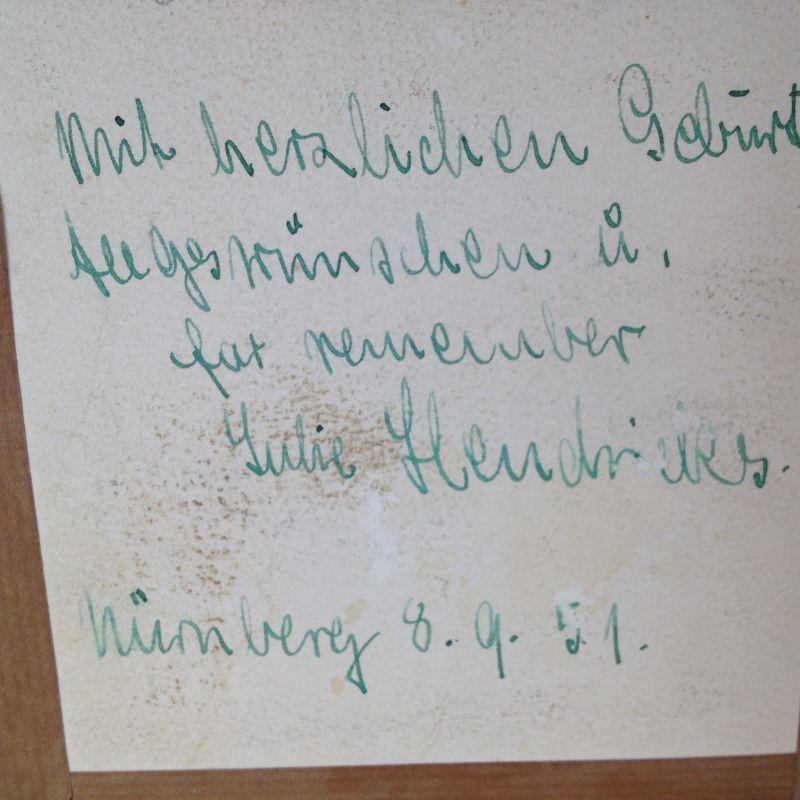 Mit herzlichen Geburt
tagswünschen u.
for remember
Julie Hendricks.
Nürnberg 8. 9. 51.